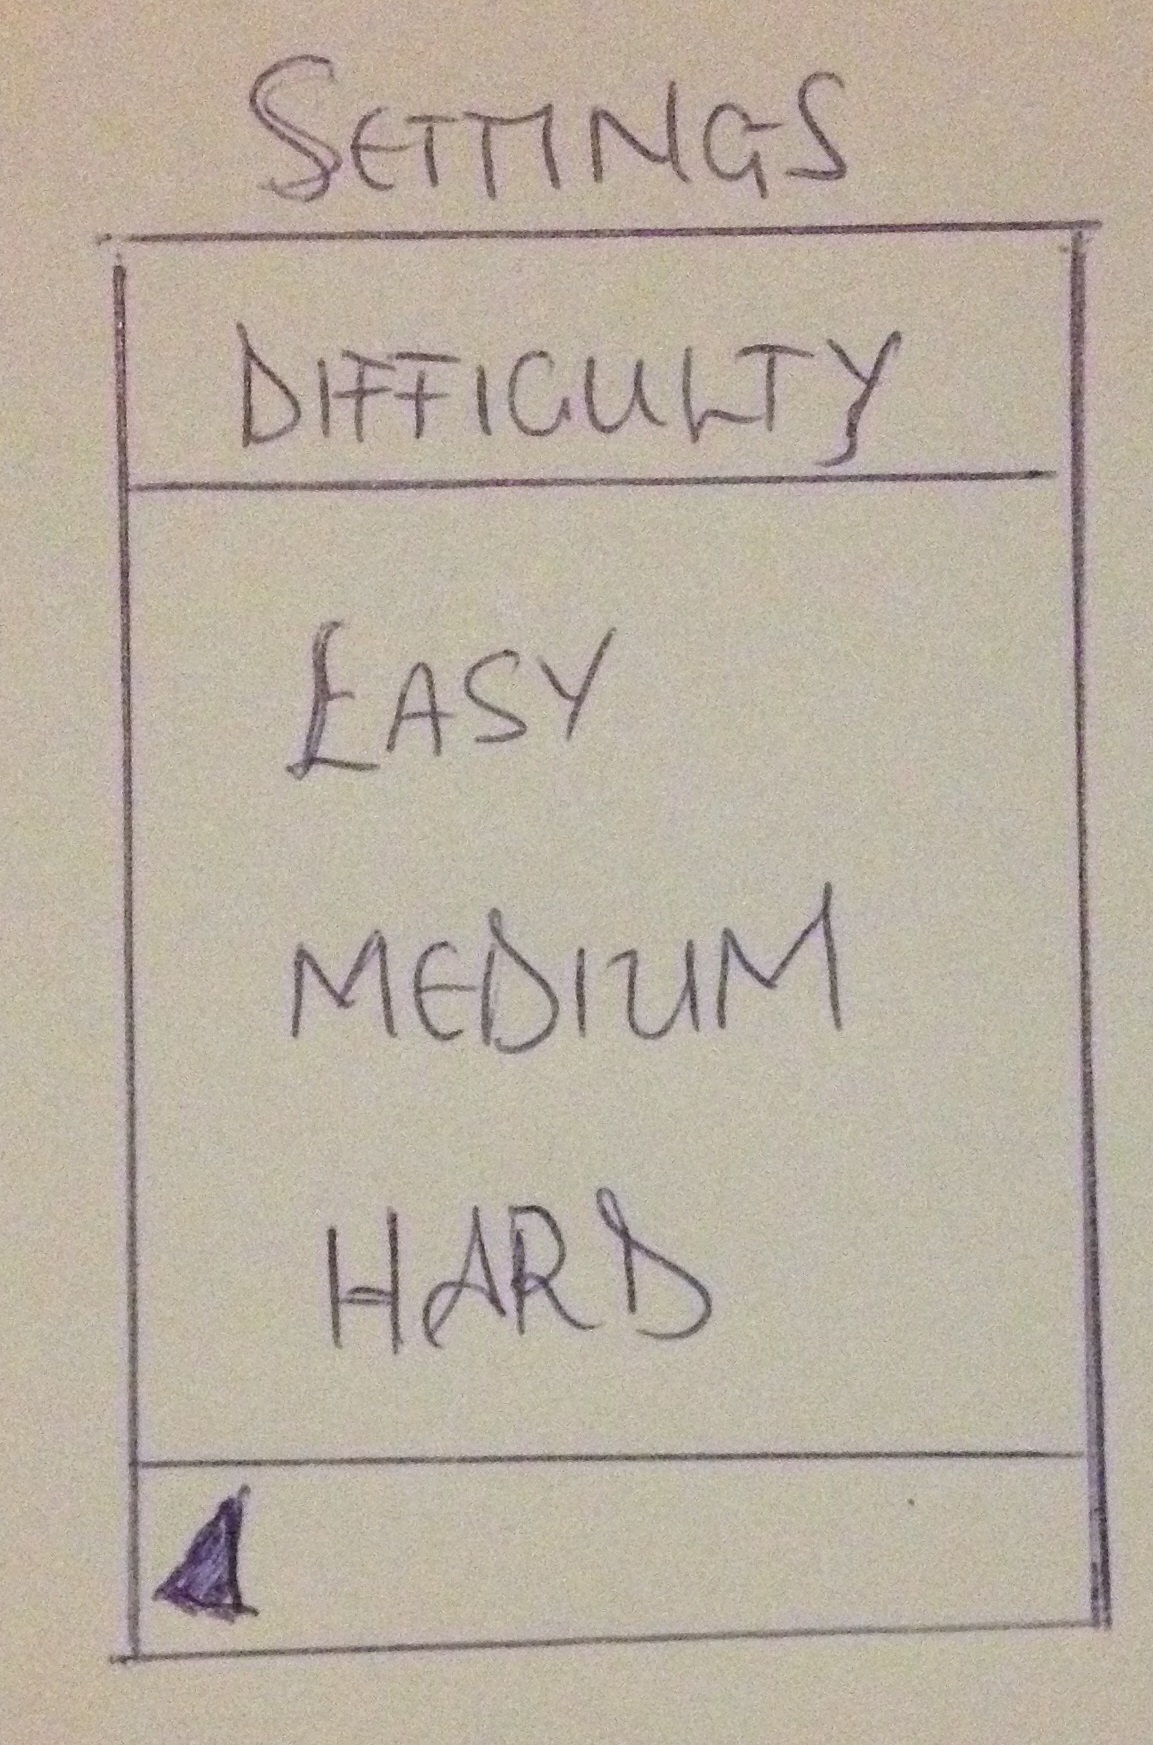 SETTINGS
DIFFICULTY
EASY
MEDIUM
HARD